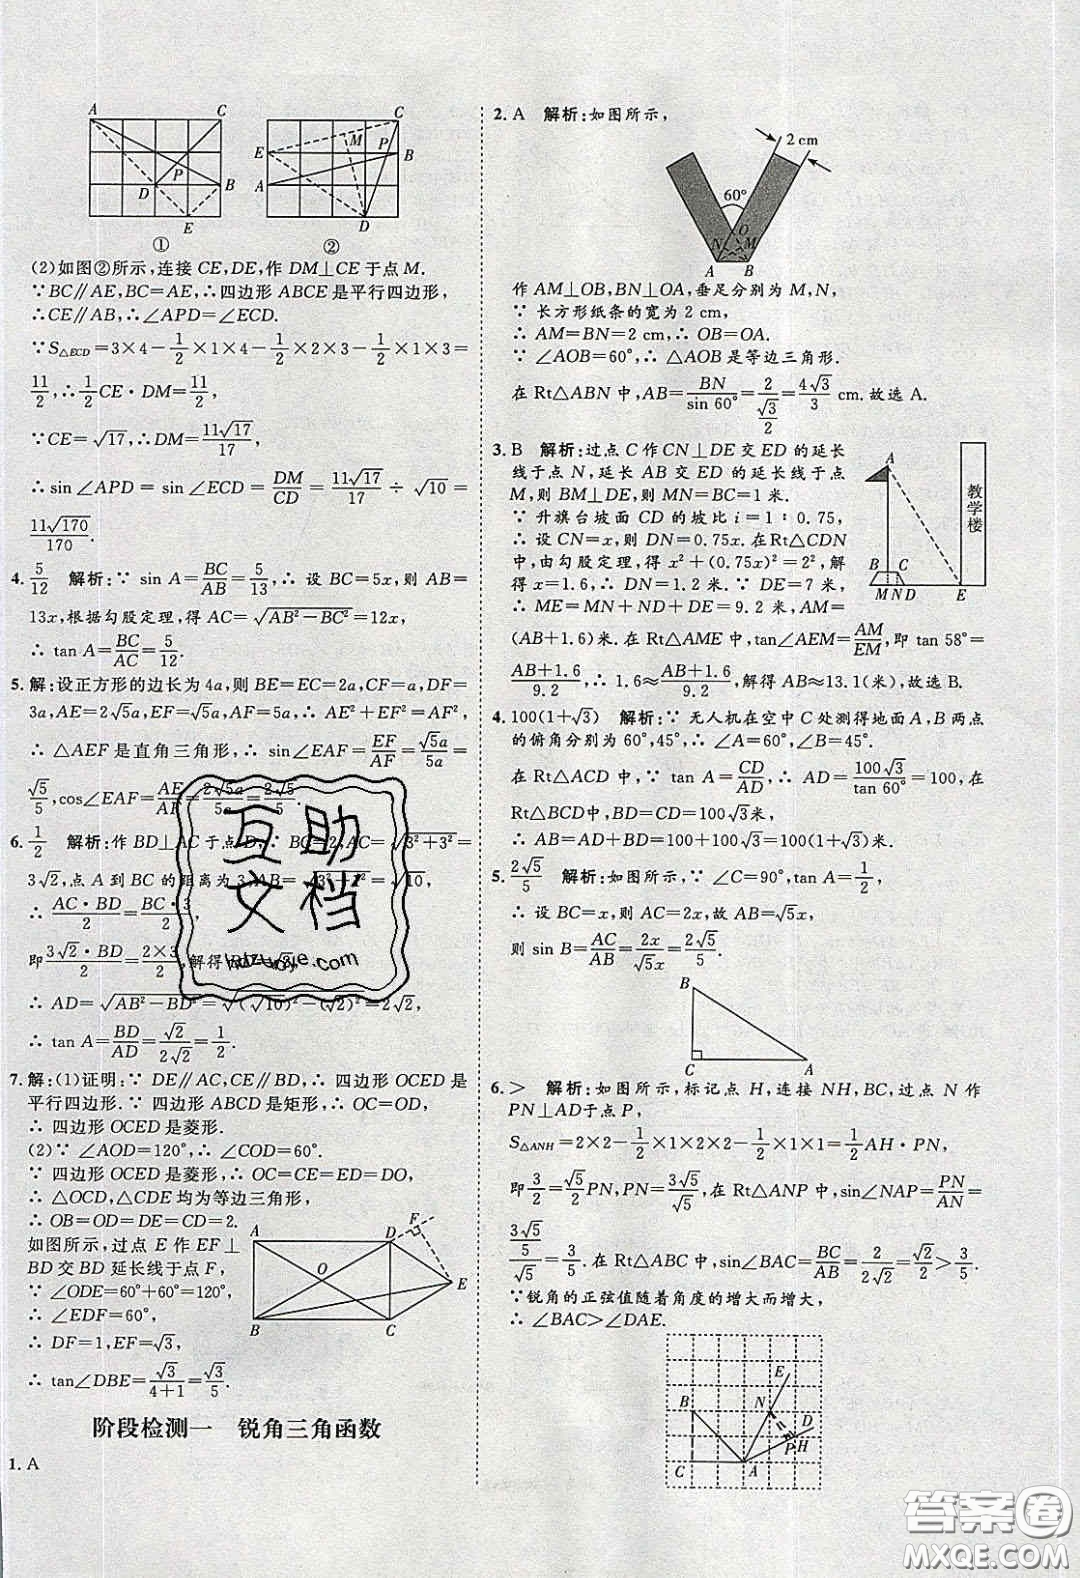 A C
P
D B
E
①
C
M
E P B
A
D
②
(2)如图②所示,连接CE,DE,作DM⊥CE于点M.
∵BC∥AE,BC=AE,∴四边形ABCE是平行四边形,
∴CE∥AB,∴∠APD=∠ECD.
∵S△ECD=3×4-1/2×1×4-1/2×2×3-1/2×1×3=
11/2,∴1/2CE·DM=11/2,
∵CE=√17,∴DM=11√17/17,
∴sin∠APD=sin∠ECD=DM/CD=11√17/17÷√10=
11√170/170.
4. 5/12 解析:∵sin A=BC/AB=5/13,∴设BC=5x,则AB=
13x,根据勾股定理,得AC=√(AB²-BC²)=12x,
∴tan A=BC/AC=5/12.
5. 解:设正方形的边长为4a,则BE=EC=2a,CF=a,DF=
3a,AE=2√5a,EF=√5a,AF=5a,∴AE²+EF²=AF²,
∴△AEF是直角三角形,∴sin∠EAF=EF/AF=√5a/5a=
√5/5,cos∠EAF=AE/AF=2√5a/5a=2√5/5.
6. 1/2 解析:作BD⊥AC于点D,∵BC=2,AC=√(3²+3²)=
3√2,点A到BC的距离为3,AB=√(3²+1²)=√10,
∴AC·BD/2=BC·3/2,
即3√2·BD/2=2×3/2,解得BD=√2,
∴AD=√(AB²-BD²)=√((√10)²-(√2)²)=2√2,
∴tan A=BD/AD=√2/2√2=1/2.
7. 解:(1)证明:∵DE∥AC,CE∥BD,∴四边形OCED是
平行四边形.∵四边形ABCD是矩形,∴OC=OD,
∴四边形OCED是菱形.
(2)∵∠AOD=120°,∴∠COD=60°.
∵四边形OCED是菱形,∴CE=ED=DO,
∴△OCD,△CDE均为等边三角形,
∴OB=OD=DE=CD=2.
如图所示,过点E作EF⊥
BD交BD延长线于点F,
∵∠ODE=60°+60°=120°,
∴∠EDF=60°,
∴DF=1,EF=√3,
∴tan∠DBE=√3/(4+1)=√3/5.
A D F
O E
B C
阶段检测一 锐角三角函数
1. A
2. A 解析:如图所示,
2 cm
60°
O
N M
A B
作AM⊥OB,BN⊥OA,垂足分别为M,N,
∵长方形纸条的宽为2 cm,
∴AM=BN=2 cm,∴OB=OA.
∵∠AOB=60°,∴△AOB是等边三角形.
在Rt△ABN中,AB=BN/sin 60°=2/(√3/2)=4√3/3 cm.故选A.
3. B 解析:过点C作CN⊥DE交ED的延长
线于点N,延长AB交ED的延长线于点
M,则BM⊥DE,则MN=BC=1米.
∵升旗台坡面CD的坡比i=1∶0.75,
∴设CN=x,则DN=0.75x.在Rt△CDN
中,由勾股定理,得x²+(0.75x)²=2²,解得
x=1.6,∴DN=1.2米.∵DE=7米,
∴ME=MN+ND+DE=9.2米,AM=
(AB+1.6)米.在Rt△AME中,tan∠AEM=AM/EM,即tan 58°=
(AB+1.6)/9.2,∴1.6≈(AB+1.6)/9.2,解得AB≈13.1(米),故选B.
A
教学楼
B C
M N D E
4. 100(1+√3) 解析:∵无人机在空中C处测得地面A,B两点
的俯角分别为60°,45°,∴∠A=60°,∠B=45°.
在Rt△ACD中,∵tan A=CD/AD,∴AD=100√3/tan 60°=100,在
Rt△BCD中,BD=CD=100√3,
∴AB=AD+BD=100+100√3=100(1+√3)米.
5. 2√5/5 解析:如图所示,∵∠C=90°,tan A=1/2,
∴设BC=x,则AC=2x,故AB=√5x,
则sin B=AC/AB=2x/√5x=2√5/5.
B
C A
6. > 解析:如图所示,标记点H,连接NH,BC,过点N作
PN⊥AD于点P,
S△ANH=2×2-1/2×1×2×2-1/2×1×1=1/2AH·PN,
即3/2=√5/2PN,PN=3√5/5,在Rt△ANP中,sin∠NAP=PN/AN=
(3√5/5)/√5=3/5.在Rt△ABC中,sin∠BAC=BC/AB=2/2√2=√2/2>3/5.
∵锐角的正弦值随着角度的增大而增大,
∴∠BAC>∠DAE.
E
B N D
P H
C A
互助文档
hdzuoye.com
答案圈
MXQE.COM